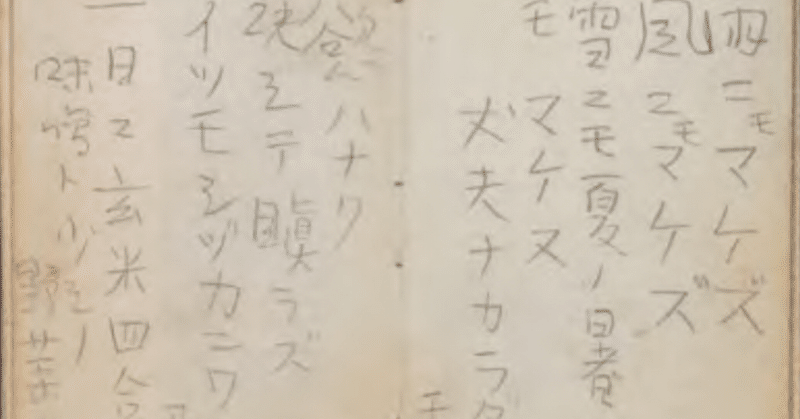 雨ニモマケズ
風ニモマケズ
雪ニモ夏ノ暑
モマケヌ
丈夫ナカラダ
モ
慾ハナク
決シテ瞋ラズ
イツモシヅカニワ
一日ニ玄米四合
味噌ト少シノ
野菜